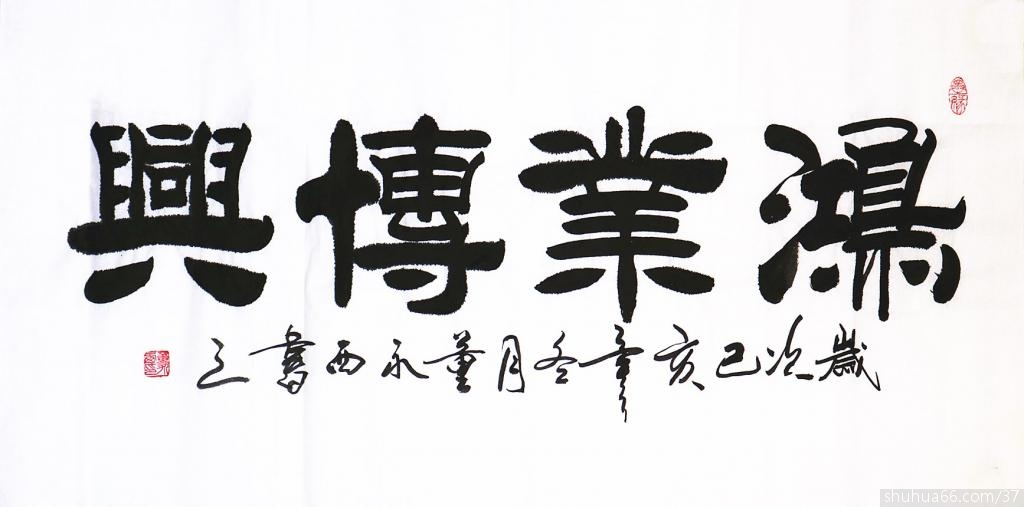 鴻業博興
歲次己亥年冬月董永西書之
shuhua66.com/37